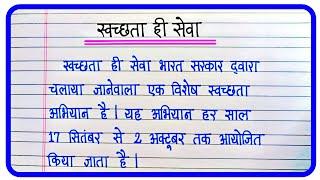 स्वच्छता ही सेवा
स्वच्छता ही सेवा भारत सरकार द्वारा
चलाया जानेवाला एक विशेष स्वच्छता
अभियान है । यह अभियान हर साल
17 सितंबर से 2 अक्टूबर तक आयोजित
किया जाता है ।